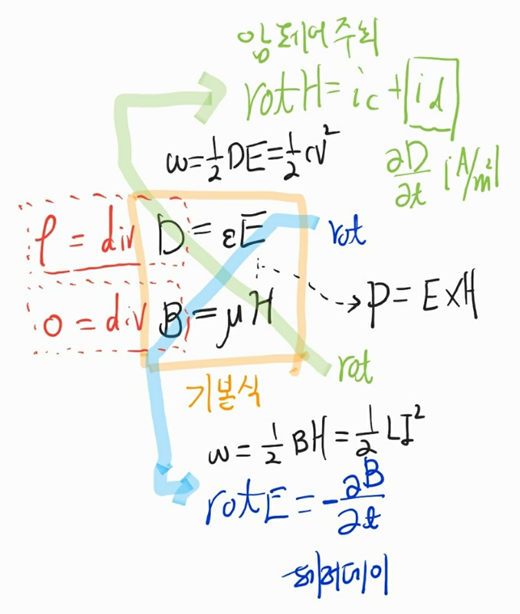 암페어주회
rotH = ic + id
w = ½DE = ½CV²
∂D/∂t [A/m²]
ρ = div D = εE
rot
0 = div B = μH
P = E×H
rot
기본식
w = ½BH = ½LI²
rotE = -∂B/∂t
패러데이